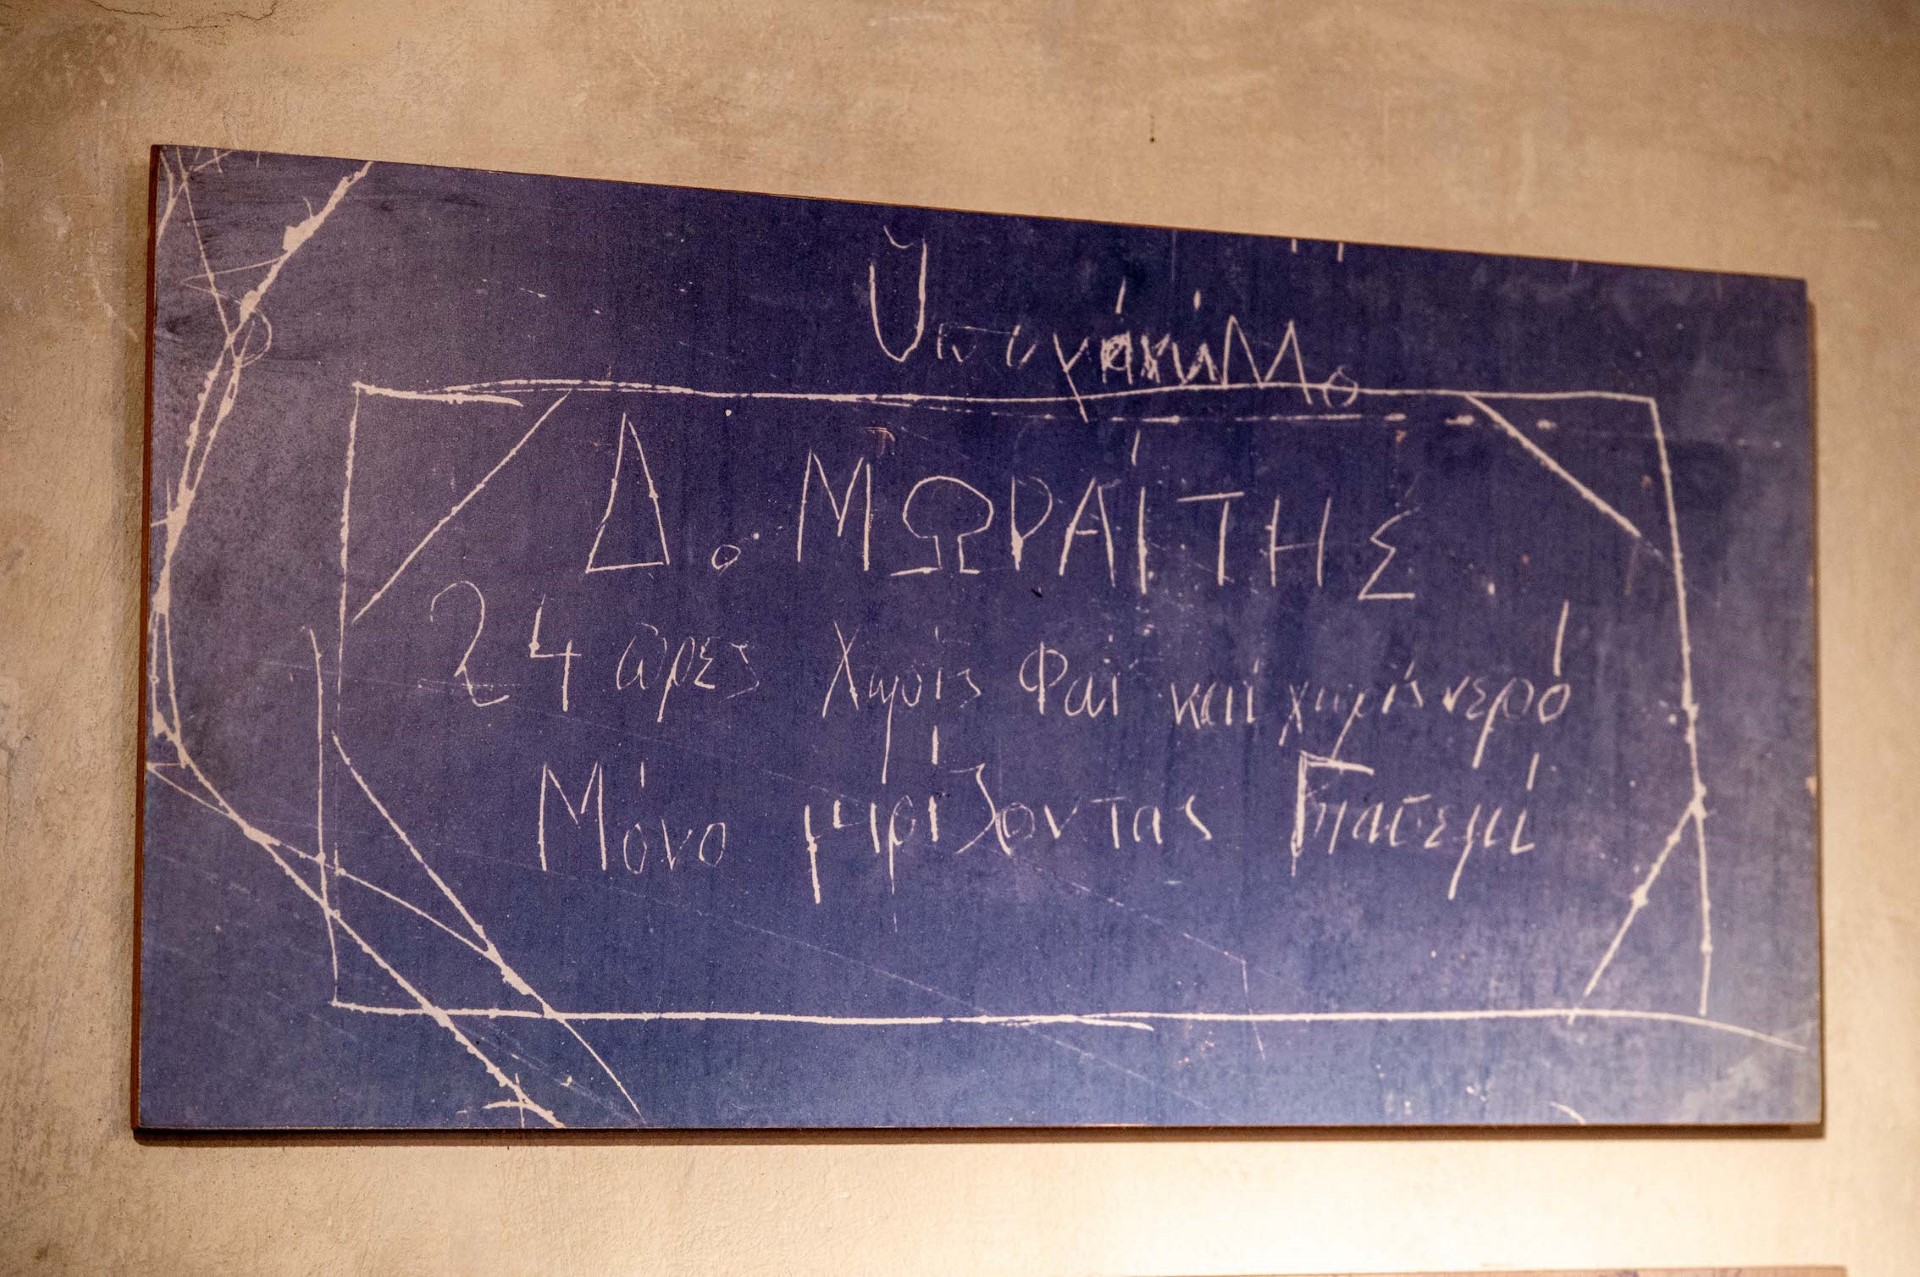 Δ. ΜΩΡΑΪΤΗΣ
24 ὧρες χωρίς Φαΐ καί χωρίς νερό
Μόνο μυρίζοντας Γιασεμί